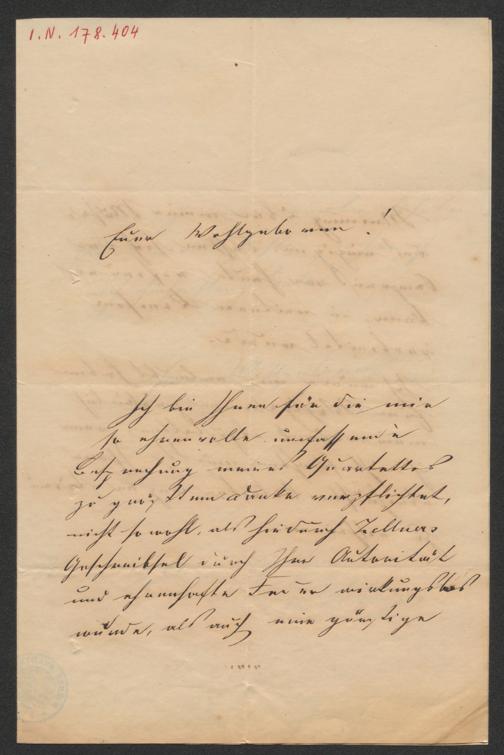 I.N. 178.404
Euer Wohlgeboren!
Ich bin Ihnen für die mir
so ehrenvolle umfassende
Besprechung meines Quartettes
zu größtem Danke verpflichtet,
nicht sowohl, als hiedurch Zellners
Geschreibsel durch Ihre Autorität
und ehrenhafte Feder wirkungslos
wurde, als auch eine günstige